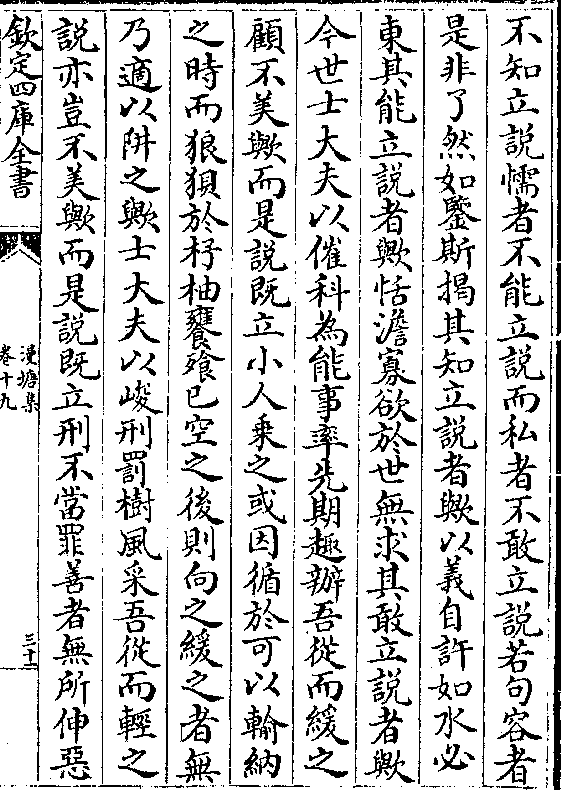 不知立説懦者不能立説而私者不敢立説若句容者
是非了然如鑒斯揭其知立説者歟以義自許如水必
東其能立説者歟恬澹寡欲於世無求其敢立説者歟
今世士大夫以催科為能事率先期趣辦吾從而緩之
顧不美歟而是説既立小人乗之或因循於可以輸納
之時而狼狽於杼柚饔飱已空之後則向之緩之者無
乃適以阱之歟士大夫以峻刑罰樹風采吾從而輕之
説亦豈不美歟而是説既立刑不當罪善者無所伸惡
欽定四庫全書
漫塘集
卷十九
三十一